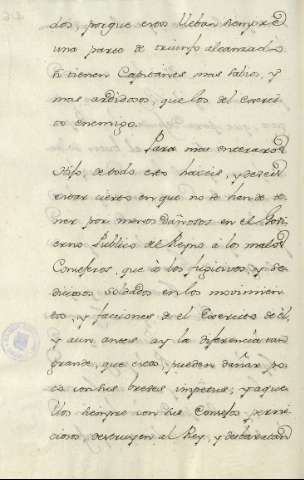 dos, porque estos lleban siempre
una parte de triunfo alcanzado
si tienen Capitanes mas sabios, y
mas ardidosos, que los del exerci
to enemigo.
Para mas enteraros
Hijo, de todo esto haveis, y deveis
estar cierto en que no se han de te
ner por menos dañosos en el Gov
ierno Publico del Reyno à los malos
Consejeros, que à los fugitivos, y se
diciosos soldados en los movimien
tos, y faciones de el Exercito de èl,
y aun antes ay la diferencia tan
grande, que estos, pueden dañar po
co con sus bredes impetus, y aque
llos siempre con sus Consejos perni
ciosos, destruyen al Rey, y desbaratan